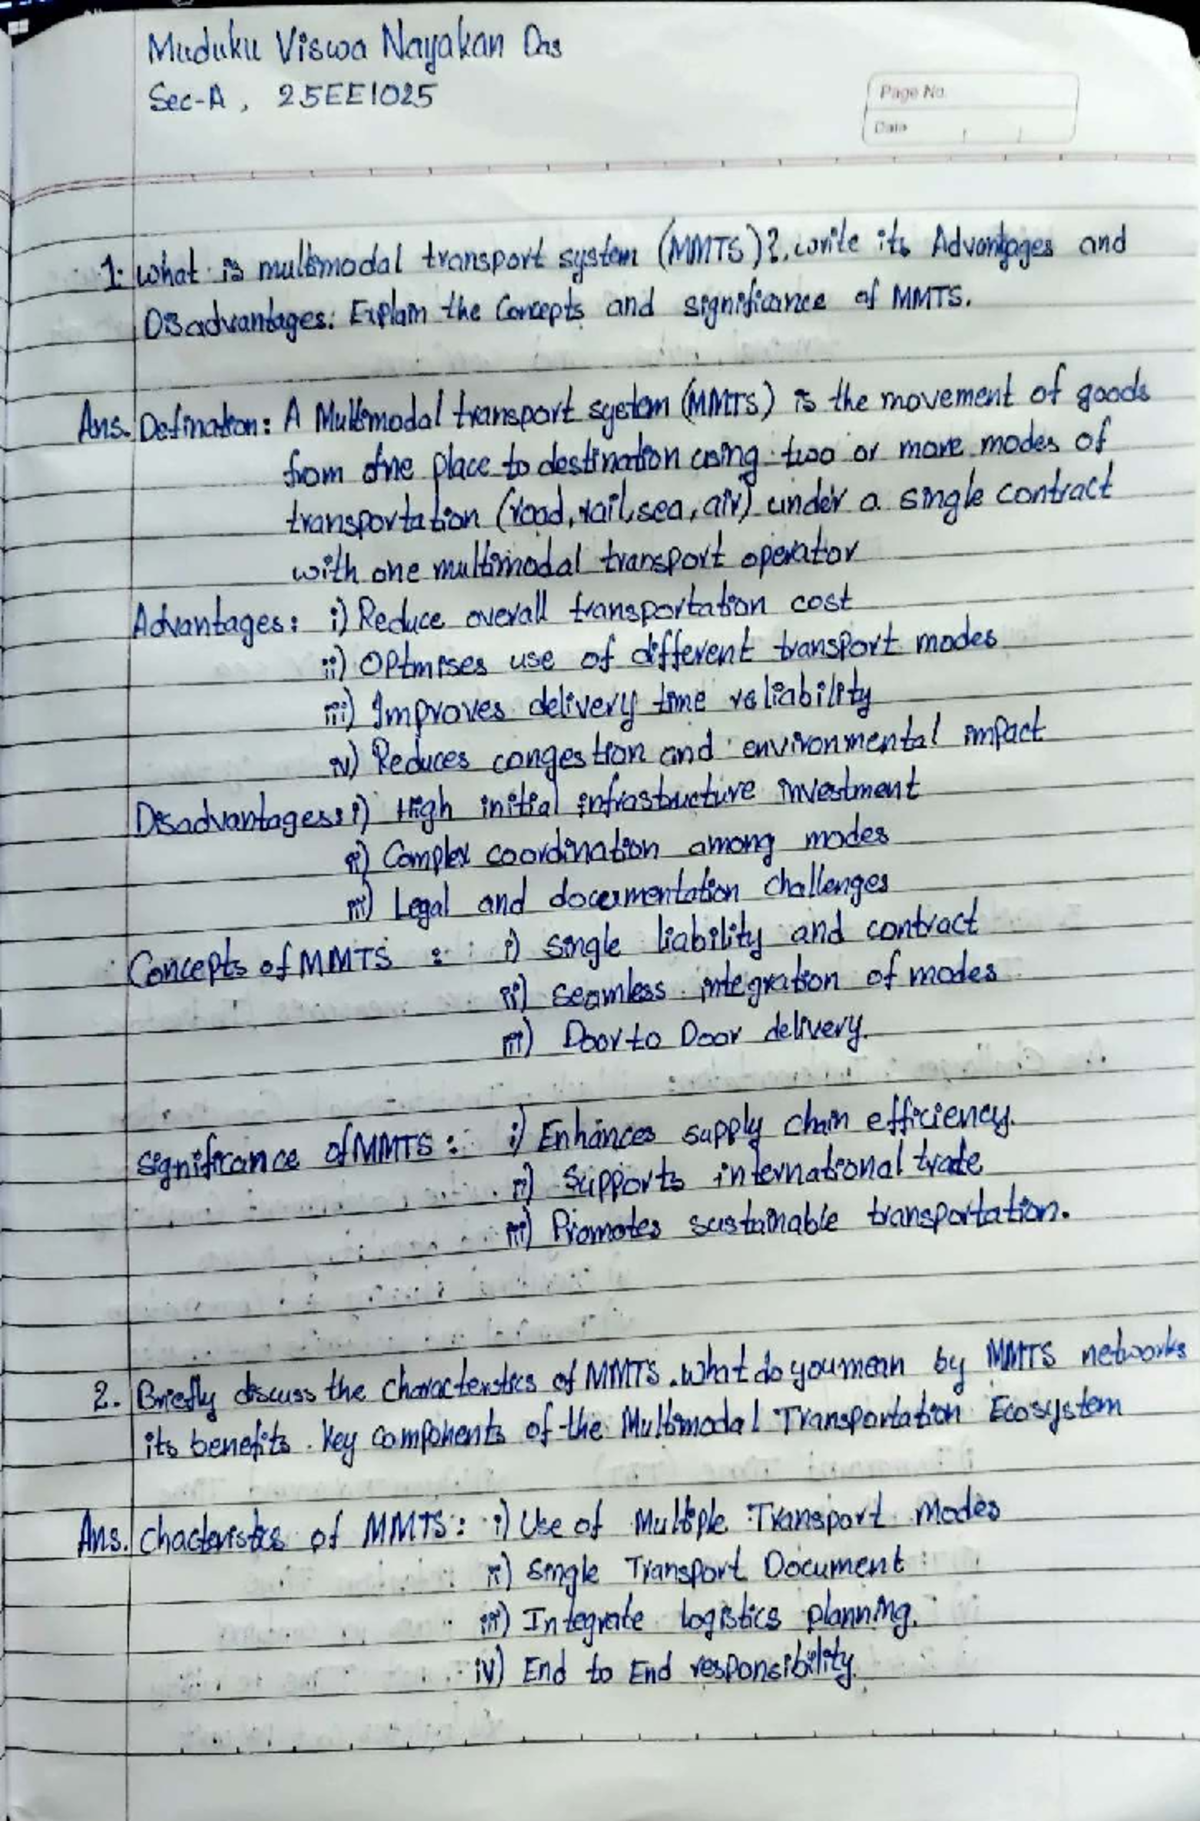 Muduku Viswa Nayakan Das
Sec-A, 25EE1025
Page No.
Date
1. What is multimodal transport system (MMTS)?. write its Advantages and
Disadvantages. Explain the Concepts and significance of MMTS.
Ans. Defination: A Multimodal transport system (MMTS) is the movement of goods
from one place to destination using two or more modes of
transportation (road, rail, sea, air) under a single contract
with one multimodal transport operator
Advantages: i) Reduce overall transportation cost
ii) Optmises use of different transport modes
iii) Improves delivery time reliability
iv) Reduces congestion and environmental impact
Disadvantages: i) High initial infrastructure investment
ii) Complex coordination among modes
iii) Legal and documentation challenges
Concepts of MMTS : i) single liability and contract
ii) seamless integration of modes
iii) Door to Door delivery.
significance of MMTS : i) Enhances supply chain efficiency.
ii) Supports international trade
iii) Promotes sustainable transportation.
2. Briefly discuss the characterstics of MMTS. What do you mean by MMTS networks
its benefits. Key components of the Multimodal Transportation Ecosystem
Ans. Chacteristics of MMTS: i) Use of Multiple Transport Modes
ii) Single Transport Document
iii) Integrate logistics planning.
iv) End to End responsibility.